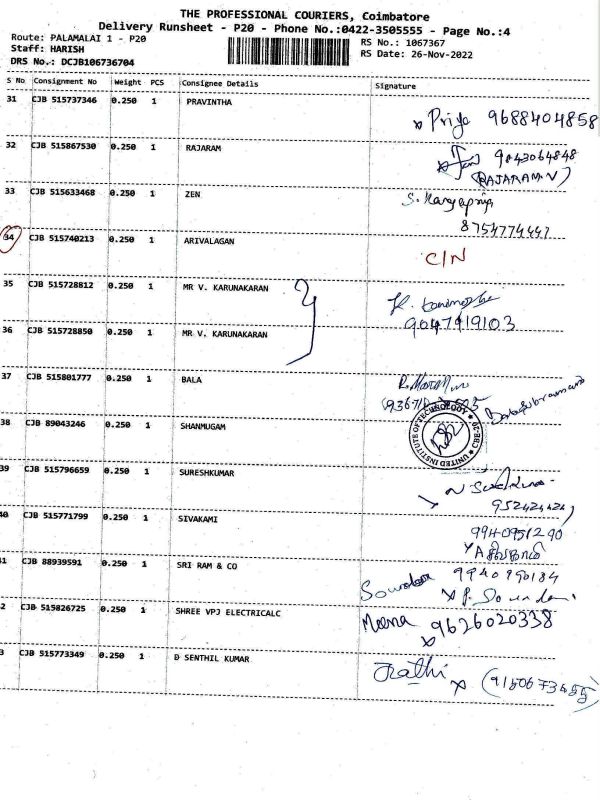 THE PROFESSIONAL COURIERS, Coimbatore
Delivery Runsheet - P20 - Phone No.:0422-3505555 - Page No.:4
Route: PALAMALAI 1 - P20
Staff: HARISH
DRS No.: DCJB106736704
RS No.: 1067367
RS Date: 26-Nov-2022
S No Consignment No Weight PCS Consignee Details Signature
31 CJB 515737346 0.250 1 PRAVINTHA
Priya 9688404858
32 CJB 515867530 0.250 1 RAJARAM
9043064848
(RAJARAM.V)
33 CJB 515633468 0.250 1 ZEN
8754774441
34 CJB 515740213 0.250 1 ARIVALAGAN
C/N
35 CJB 515728812 0.250 1 MR V. KARUNAKARAN
9047919103
36 CJB 515728850 0.250 1 MR V. KARUNAKARAN
37 CJB 515801777 1 BALA
38 CJB 89043246 0.250 1 SHANMUGAM
UNITED INSTITUTE OF TECHNOLOGY CBE-20
39 CJB 515796659 0.250 1 SURESHKUMAR
40 CJB 515771799 0.250 1 SIVAKAMI
9940951290
41 CJB 88939591 0.250 1 SRI RAM & CO
9940990184
2 CJB 515826725 0.250 1 SHREE VPJ ELECTRICALC
Meena 9626020338
3 CJB 515773349 0.250 1 D SENTHIL KUMAR
Rathi (9150673455)